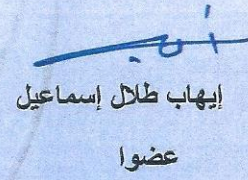 إيهاب طلال إسماعيل
عضوا